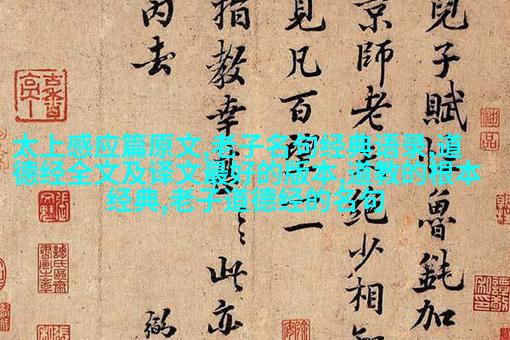 太上感应篇原文,老子名句经典语录,道
德经全文及译文最好的版本,道教的根本
经典,老子道德经的名句
兒子賦魯鈍加
京師老絕少相
見凡百一一
指教幸此亦